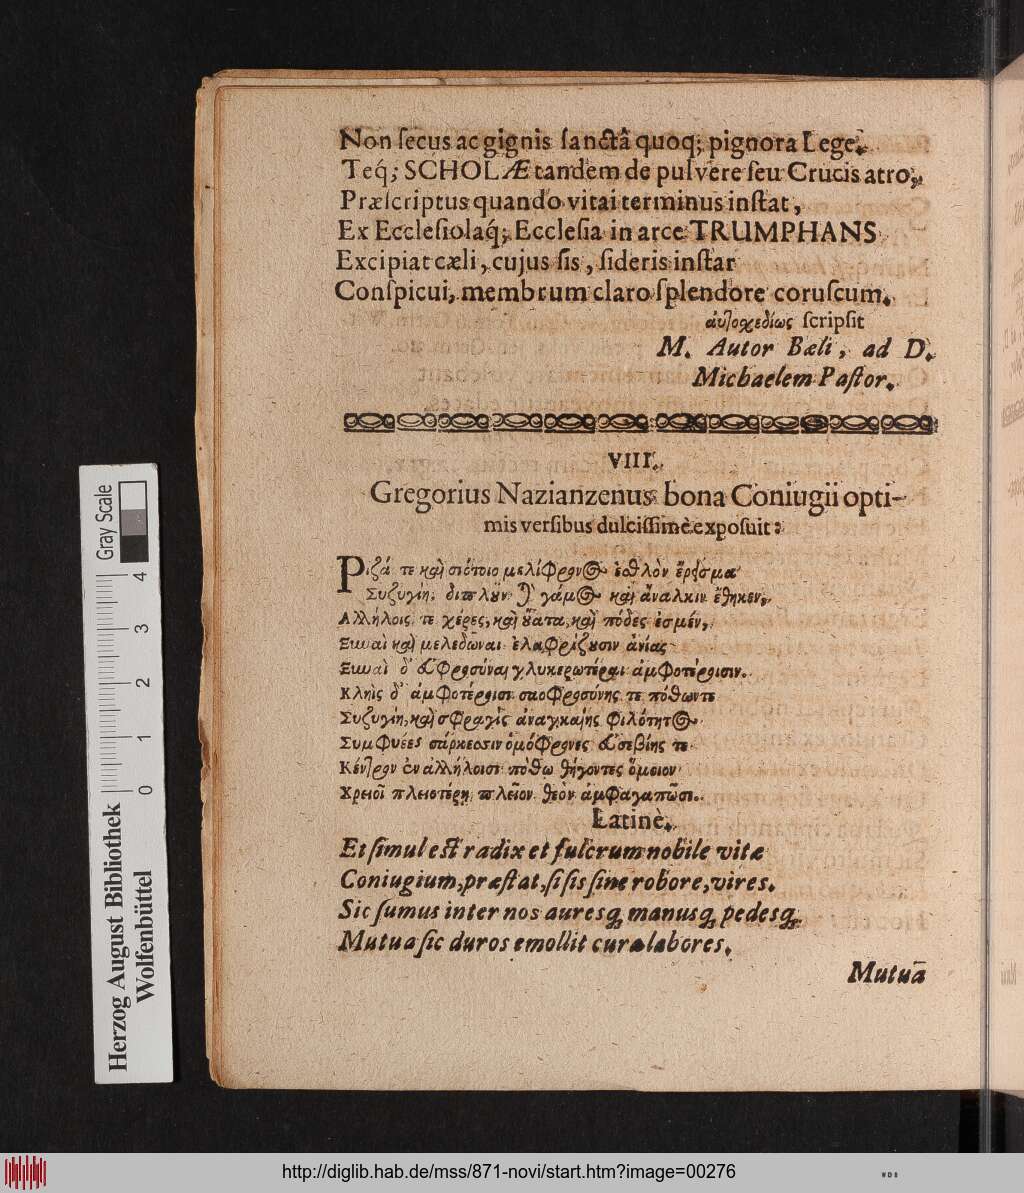 Non ſecus ac gignis ſanctâ quoq; pignora Lege.
Teq́; SCHOLÆ tandem de pulvere ſeu Crucis atro,
Præſcriptus quando vitai terminus inſtat,
Ex Eccleſiolaq́; Eccleſia in arce TRUMPHANS
Excipiat cæli, cujus ſis, ſideris inſtar
Conſpicui, membrum claro ſplendore coruſcum.
αὐτοχεδίως ſcripſit
M. Autor Bæli, ad D.
Michaelem Paſtor.
VIII.
Gregorius Nazianzenus bona Coniugii opti-
mis verſibus dulciſſimè expoſuit:
Ριζά τε καὶ βιότοιο μελίφρονος ἐσθλὸν ἔρεισμα
Συζυγίη, διπλοῦν γάμος καὶ ἄναλκιν ἔθηκεν,
Αλλήλοις τε χέρες, καὶ οὔατα, καὶ πόδες ἐσμέν,
Ξυναὶ καὶ μελεδῶναι ἐλαφρίζουσιν ἀνίας
Ξυναὶ δ' εὐφροσύναι γλυκερωτέραι ἀμφοτέροισιν.
Κληὶς δ' ἀμφοτέροισι σαοφροσύνης τε πόθων τε
Συζυγίη, καὶ σφραγὶς ἀναγκαίης φιλότητος
Συμφυέες σάρκεσσιν ὁμόφρονες εὐσεβίης τε
Κέντρον ἐν ἀλλήλοισι πόθω θήγοντες ὅμοιον
Χρειοῖ πλειοτέρῃ πλεῖον θεὸν ἀμφαγαπῶσι.
Latinè.
Et ſimul eſt radix et fulcrum nobile vitæ
Coniugium, præſtat, ſi ſis ſine robore, vires.
Sic ſumus inter nos auresq; manusq; pedesq;
Mutua ſic duros emollit cura labores.
Mutuā
Gray Scale
4
3
2
1
0
Herzog August Bibliothek
Wolfenbüttel
http://diglib.hab.de/mss/871-novi/start.htm?image=00276